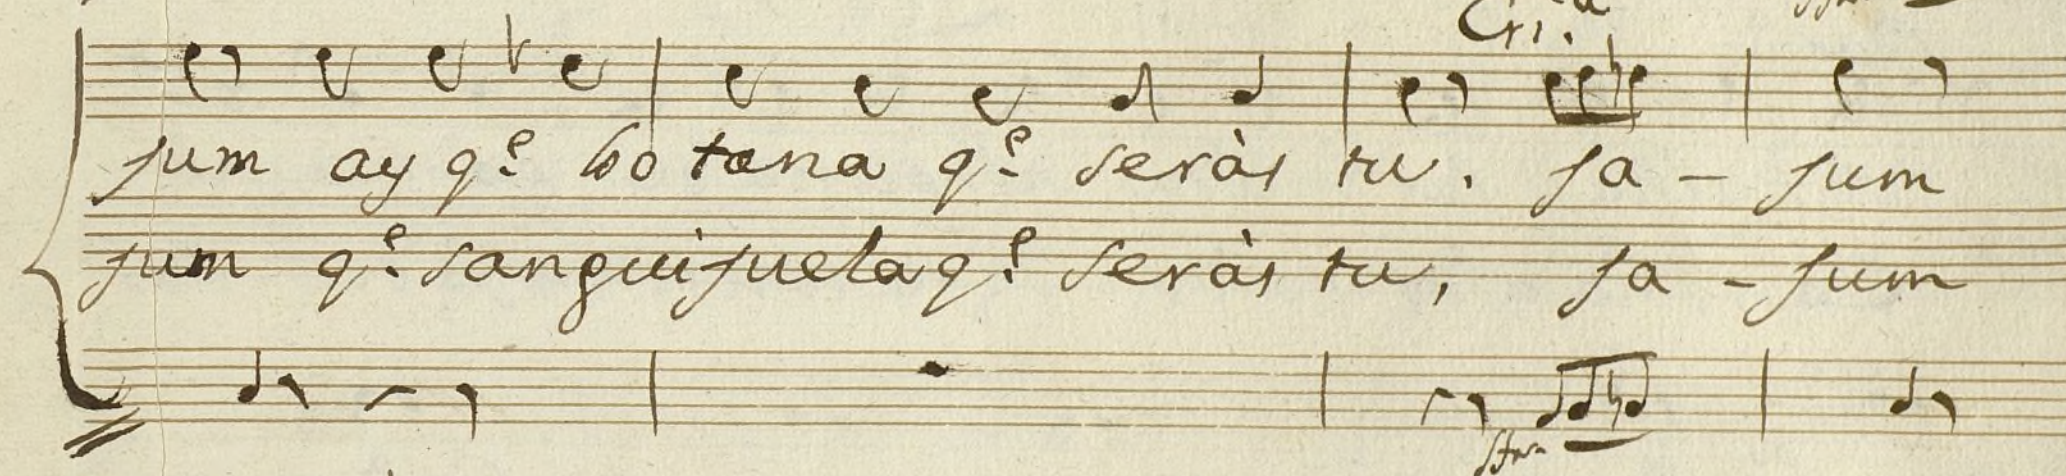 Cri.a
jum ay q.e bo tana q.e seràs tu. ja - jum
jum q.e sanguijuela q.e seràs tu, ja - jum